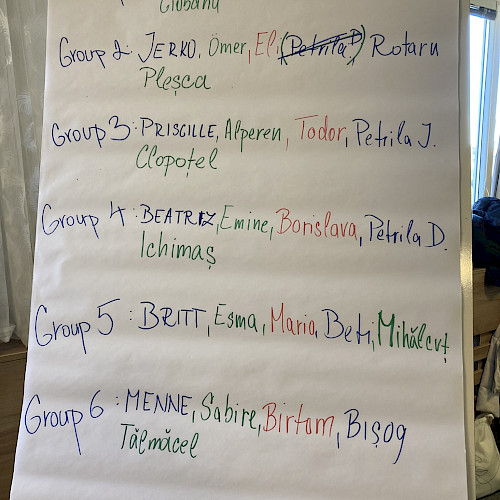 Ciobanu
Group 2: JERKO, Ömer, Eli, (Petrila) Rotaru
Pleșca
Group 3: PRISCILLE, Alperen, Todor, Petrila J.
Clopoțel
Group 4: BEATRIZ, Emine, Borislava, Petrila D.
Ichimaș
Group 5: BRITT, Esma, Maria, Beti,
Group 6: MENNE, Sabire, Birtam, Bișog
Tălmăcel